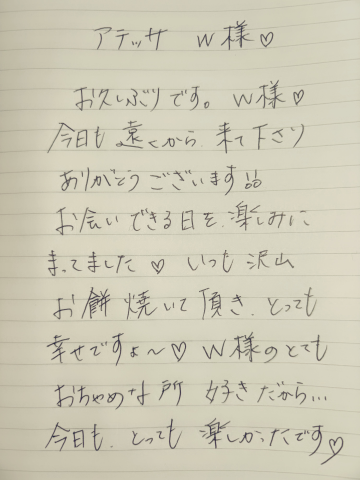 アテッサ W様♡
お久しぶりです。W様♡
今日も遠くから来て下さり
ありがとうございます!!
お会いできる日を楽しみに
まってました♡ いつも沢山
お餅焼いて頂き、とっても
幸せですょ〜♡ W様のとても
おちゃめな所 好きだから...
今日も、とっても楽しかったです♡